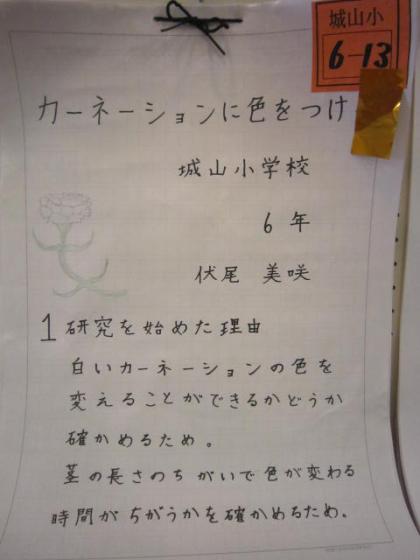 城山小
6-13
カーネーションに色をつけ
城山小学校
6年
伏尾 美咲
1 研究を始めた理由
白いカーネーションの色を
変えることができるかどうか
確かめるため。
茎の長さのちがいで色が変わる
時間がちがうかを確かめるため。